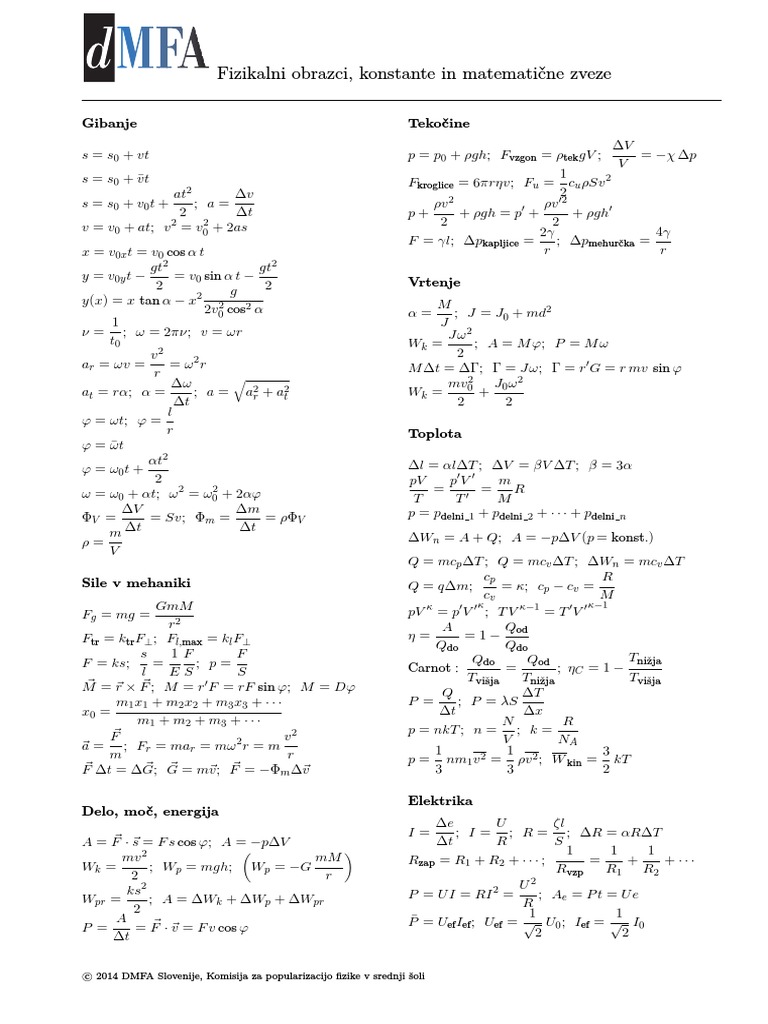 dMFA Fizikalni obrazci, konstante in matematične zveze
Gibanje
s = s₀ + vt
s = s₀ + v̄t
s = s₀ + v₀t + at²/2; a = Δv/Δt
v = v₀ + at; v² = v₀² + 2as
x = v₀ₓt = v₀ cos α t
y = v₀ᵧt − gt²/2 = v₀ sin α t − gt²/2
y(x) = x tan α − x² g/(2v₀² cos² α)
ν = 1/t₀; ω = 2πν; v = ωr
a_r = ωv = v²/r = ω²r
a_t = rα; α = Δω/Δt; a = √(a_r² + a_t²)
φ = ωt; φ = l/r
φ = ω̄t
φ = ω₀t + αt²/2
ω = ω₀ + αt; ω² = ω₀² + 2αφ
Φ_V = ΔV/Δt = Sv; Φ_m = Δm/Δt = ρΦ_V
ρ = m/V
Sile v mehaniki
F_g = mg = GmM/r²
F_tr = k_tr F_⊥; F_l,max = k_l F_⊥
F = ks; s/l = 1/E F/S; p = F/S
M⃗ = r⃗ × F⃗; M = r′F = rF sin φ; M = Dφ
x₀ = (m₁x₁ + m₂x₂ + m₃x₃ + ···)/(m₁ + m₂ + m₃ + ···)
a⃗ = F⃗/m; F_r = ma_r = mω²r = m v²/r
F⃗ Δt = ΔG⃗; G⃗ = mv⃗; F⃗ = −Φ_mΔv⃗
Delo, moč, energija
A = F⃗ · s⃗ = Fs cos φ; A = −pΔV
W_k = mv²/2; W_p = mgh; (W_p = −G mM/r)
W_pr = ks²/2; A = ΔW_k + ΔW_p + ΔW_pr
P = A/Δt = F⃗ · v⃗ = Fv cos φ
Tekočine
p = p₀ + ρgh; F_vzgon = ρ_tek gV; ΔV/V = −χ Δp
F_kroglice = 6πrηv; F_u = 1/2 c_u ρSv²
p + ρv²/2 + ρgh = p′ + ρv′²/2 + ρgh′
F = γl; Δp_kapljice = 2γ/r; Δp_mehurčka = 4γ/r
Vrtenje
α = M/J; J = J₀ + md²
W_k = Jω²/2; A = Mφ; P = Mω
MΔt = ΔΓ; Γ = Jω; Γ = r′G = r mv sin φ
W_k = mv₀²/2 + J₀ω²/2
Toplota
Δl = αlΔT; ΔV = βVΔT; β = 3α
pV/T = p′V′/T′ = m/M R
p = p_delni_1 + p_delni_2 + ··· + p_delni_n
ΔW_n = A + Q; A = −pΔV(p = konst.)
Q = mc_pΔT; Q = mc_vΔT; ΔW_n = mc_vΔT
Q = qΔm; c_p/c_v = κ; c_p − c_v = R/M
pV^κ = p′V′^κ; TV^(κ−1) = T′V′^(κ−1)
η = A/Q_do = 1 − Q_od/Q_do
Carnot : Q_do/T_višja = Q_od/T_nižja; η_C = 1 − T_nižja/T_višja
P = Q/Δt; P = λS ΔT/Δx
p = nkT; n = N/V; k = R/N_A
p = 1/3 nm₁v̅² = 1/3 ρv̅²; W̅_kin = 3/2 kT
Elektrika
I = Δe/Δt; I = U/R; R = ζl/S; ΔR = αRΔT
R_zap = R₁ + R₂ + ···; 1/R_vzp = 1/R₁ + 1/R₂ + ···
P = UI = RI² = U²/R; A_e = Pt = Ue
P̄ = U_ef I_ef; U_ef = 1/√2 U₀; I_ef = 1/√2 I₀
© 2014 DMFA Slovenije, Komisija za popularizacijo fizike v srednji šoli